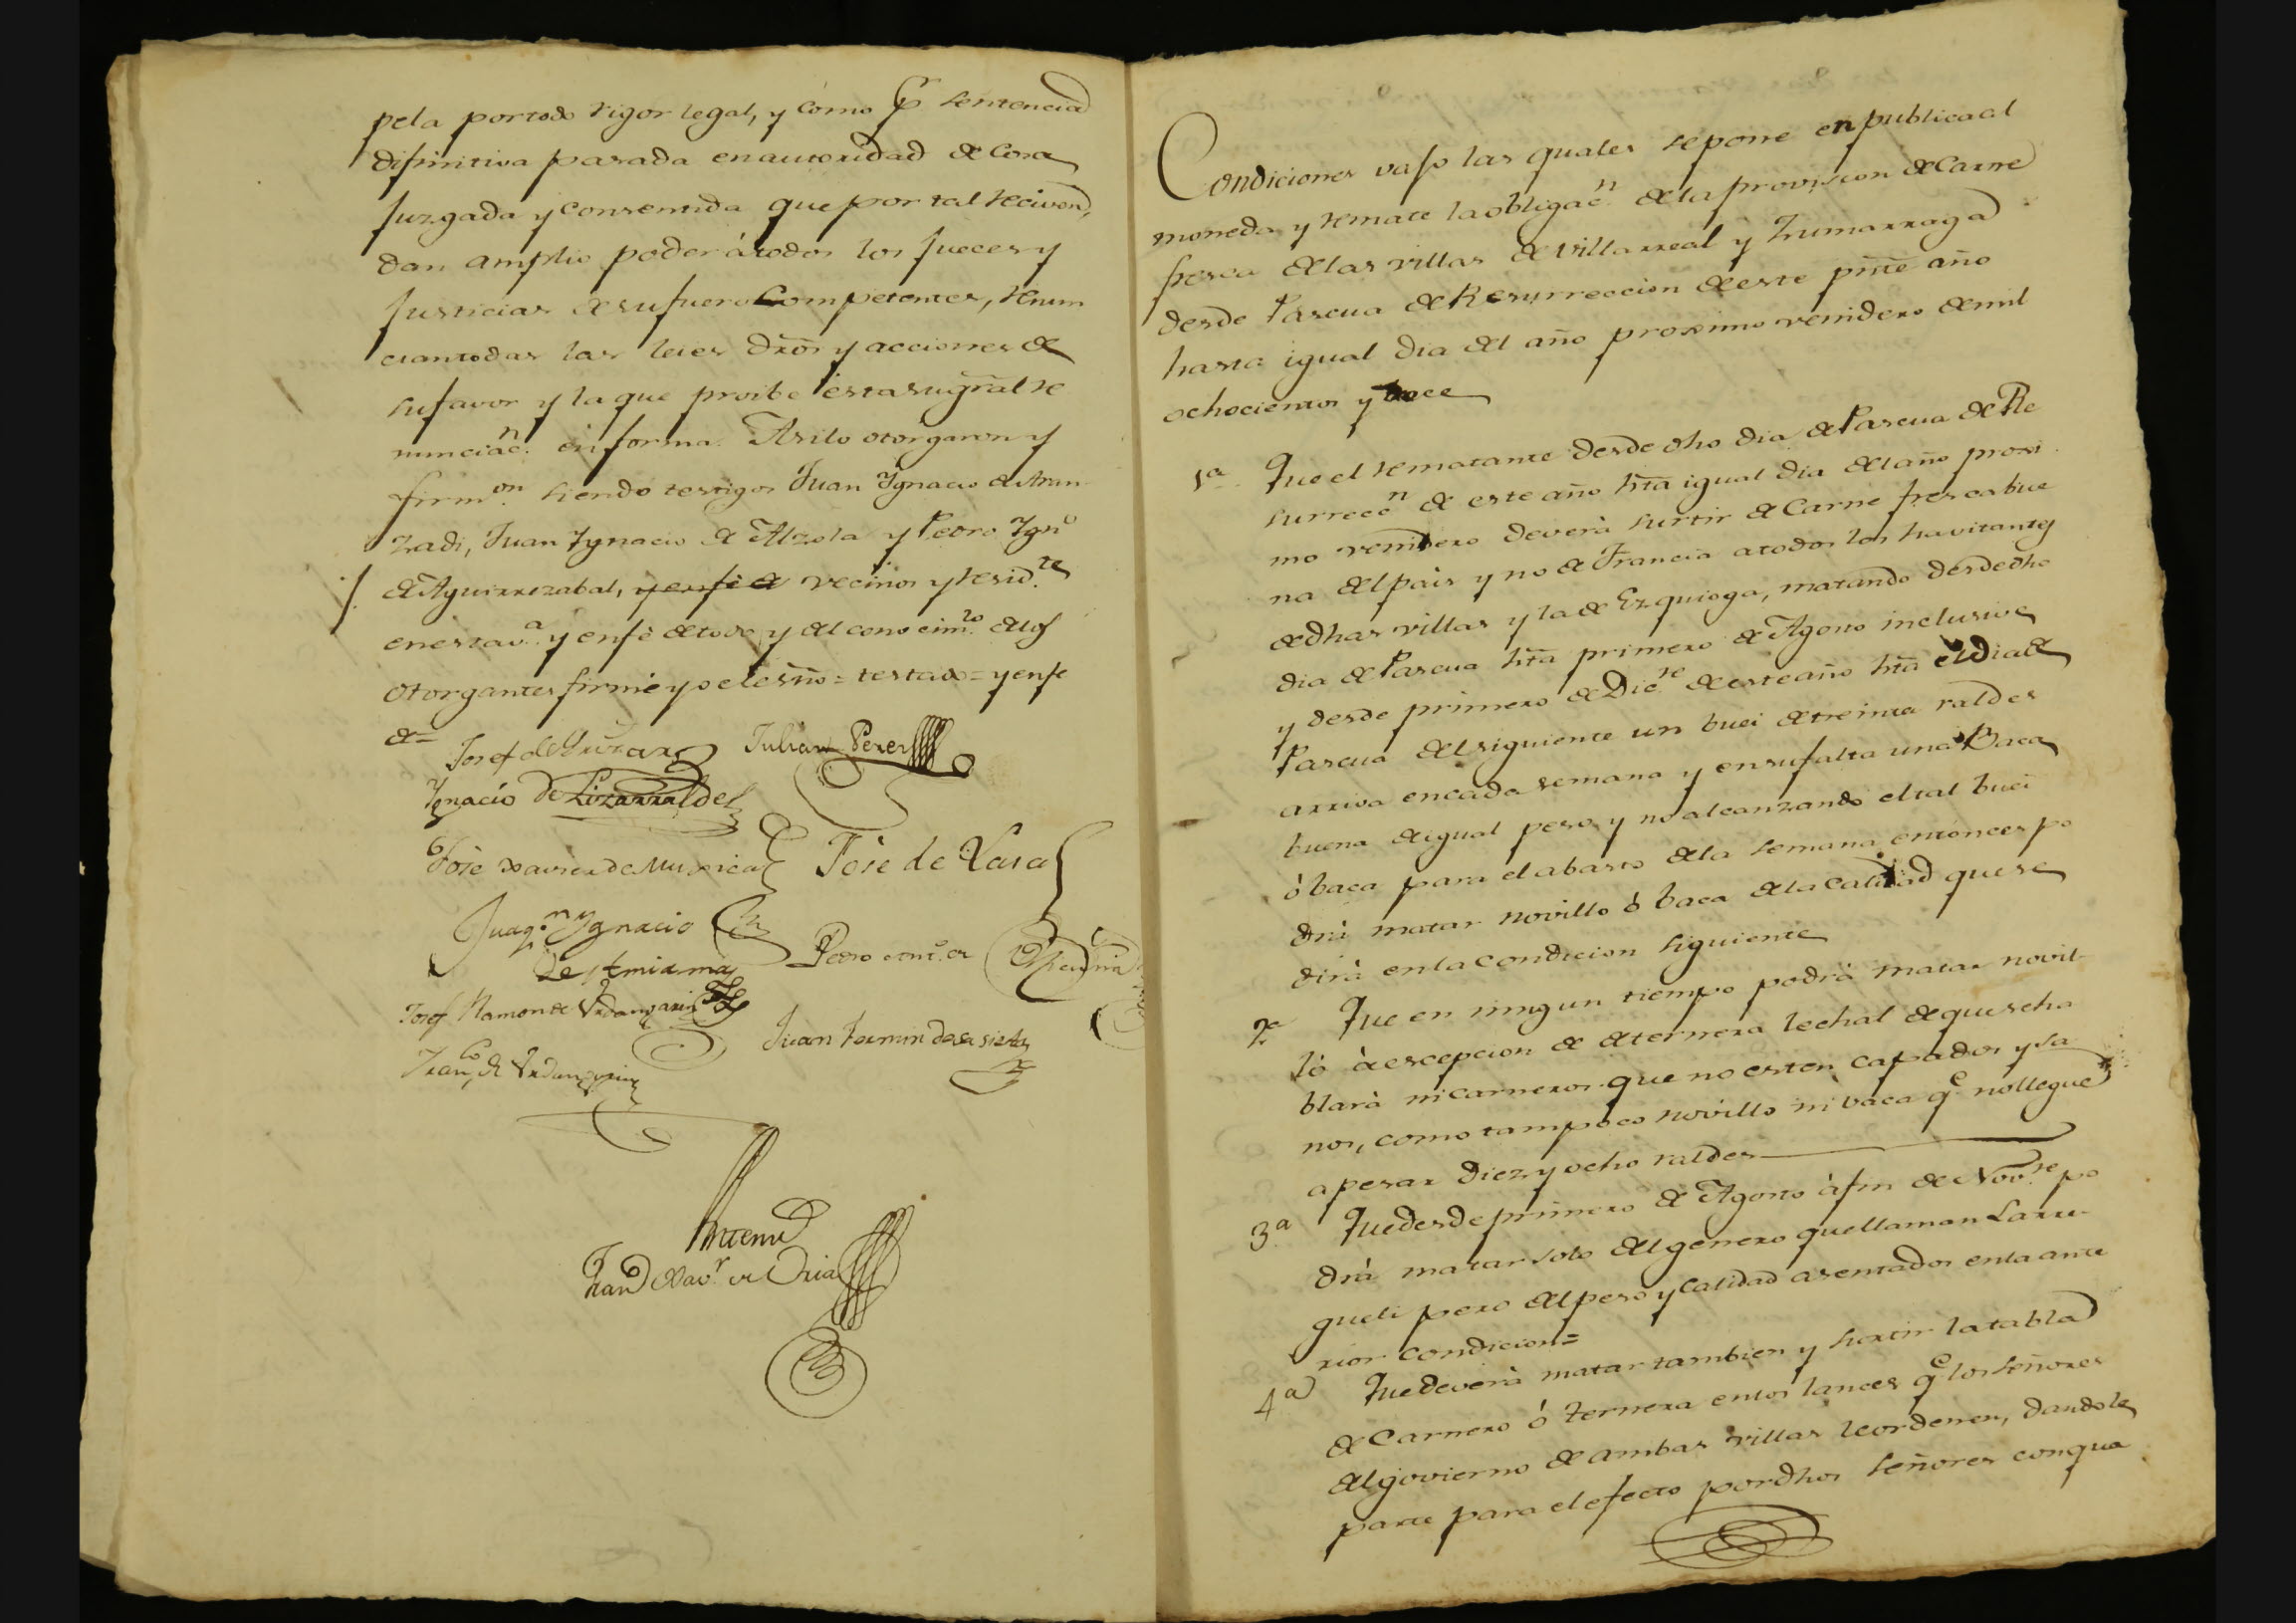 pela por todo rigor legal, y como pr. sentencia
difinitiva pasada en autoridad de Cosa
Juzgada y consentida que por tal reciven,
dan amplio poder á todos los Jueces y
Justicias de su fuero Competentes, renun
cian todas las leies dros y acciones de
su favor y la que proibe esta su gral re
nunciacn. en forma. Asi lo otorgaron y
firmon. siendo testigos Juan Ygnacio de Aran
zadi, Juan Ygnacio de Alzola y Pedro Ygno
de Aguirrezabal, y en fe de vecinos y residtes
en esta va. y en fè de todo y del conocimto. de los
Otorgantes firmé yo el esno = testado = y en fe
de =
Josef de Julian Perez
Ygnacio de Lizarralde
José Xavier de Muxica José de Lasa
Juaqn. Ygnacio
Pedro
Josef Ramon de Urdangarin
Juan Fermin de
Franco. de Urdangarin
Antemi
Franco Xavr. de Oria
Condiciones vajo las quales se pone en publica al
moneda y remate la obligacn. de la provision de Carne
fresca de las villas de Villarreal y Zumarraga
desde Pascua de Resurreccion de este pnte año
hasta igual dia del año proximo venidero de mil
ochocientos y doce
1a. Que el rematante desde dho dia de Pascua de Re
surreccn. de este año hta igual dia del año proxi
mo venidero deverà surtir de Carne fresca bue
na del pais y no de Francia a todos los havitantes
de dhas villas y la de Ezquioga, matando desde dho
dia de Pascua hta primero de Agosto inclusive
y desde primero de Dicre. de este año hta el dia de
Pascua del siguiente un buei de treinta raldes
arriva en cada semana y en su falta una Baca
buena de igual peso, y no alcanzando el tal buei
ó baca para el abasto de la semana entonces po
drá matar novillo ó baca de la calidad que se
dirà en la condicion siguiente
2a. Que en ningun tiempo podrà matar novil-
lo à escepcion de de ternera lechal de que se ha
blarà ni carneros que no esten capados y sa
nos, como tampoco novillo ni vaca qe. no llegue
a pesar diez y ocho raldes
3a. Que desde primero de Agosto à fin de Novre. po
drà matar solo del genero que llaman Larru-
gueli pero del peso y calidad asentados en la ante
rior condicion =
4a. Que deverà matar tambien y surtir la tabla
de Carnero ó Ternera en los lances qe. los Señores
del govierno de ambas villas le ordenen, dandole
parte para el efecto por dhos Señores con qua